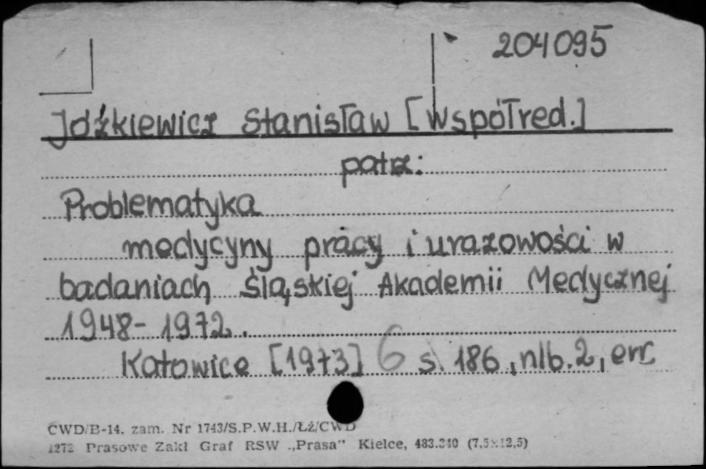 204095
Idźkiewicz Stanisław [Współred.]
patrz:
Problematyka
medycyny pracy i urazowości w
badaniach Śląskiej Akademii Medycznej
1948-1972.
Katowice [1973] 6 s. 186, nlb. 2, err.
CWD/B-14. zam. Nr 1743/S.P.W.H./Łź/CWD
1272 Prasowe Zakł Graf RSW „Prasa" Kielce, 483.340 (7,5×12,5)